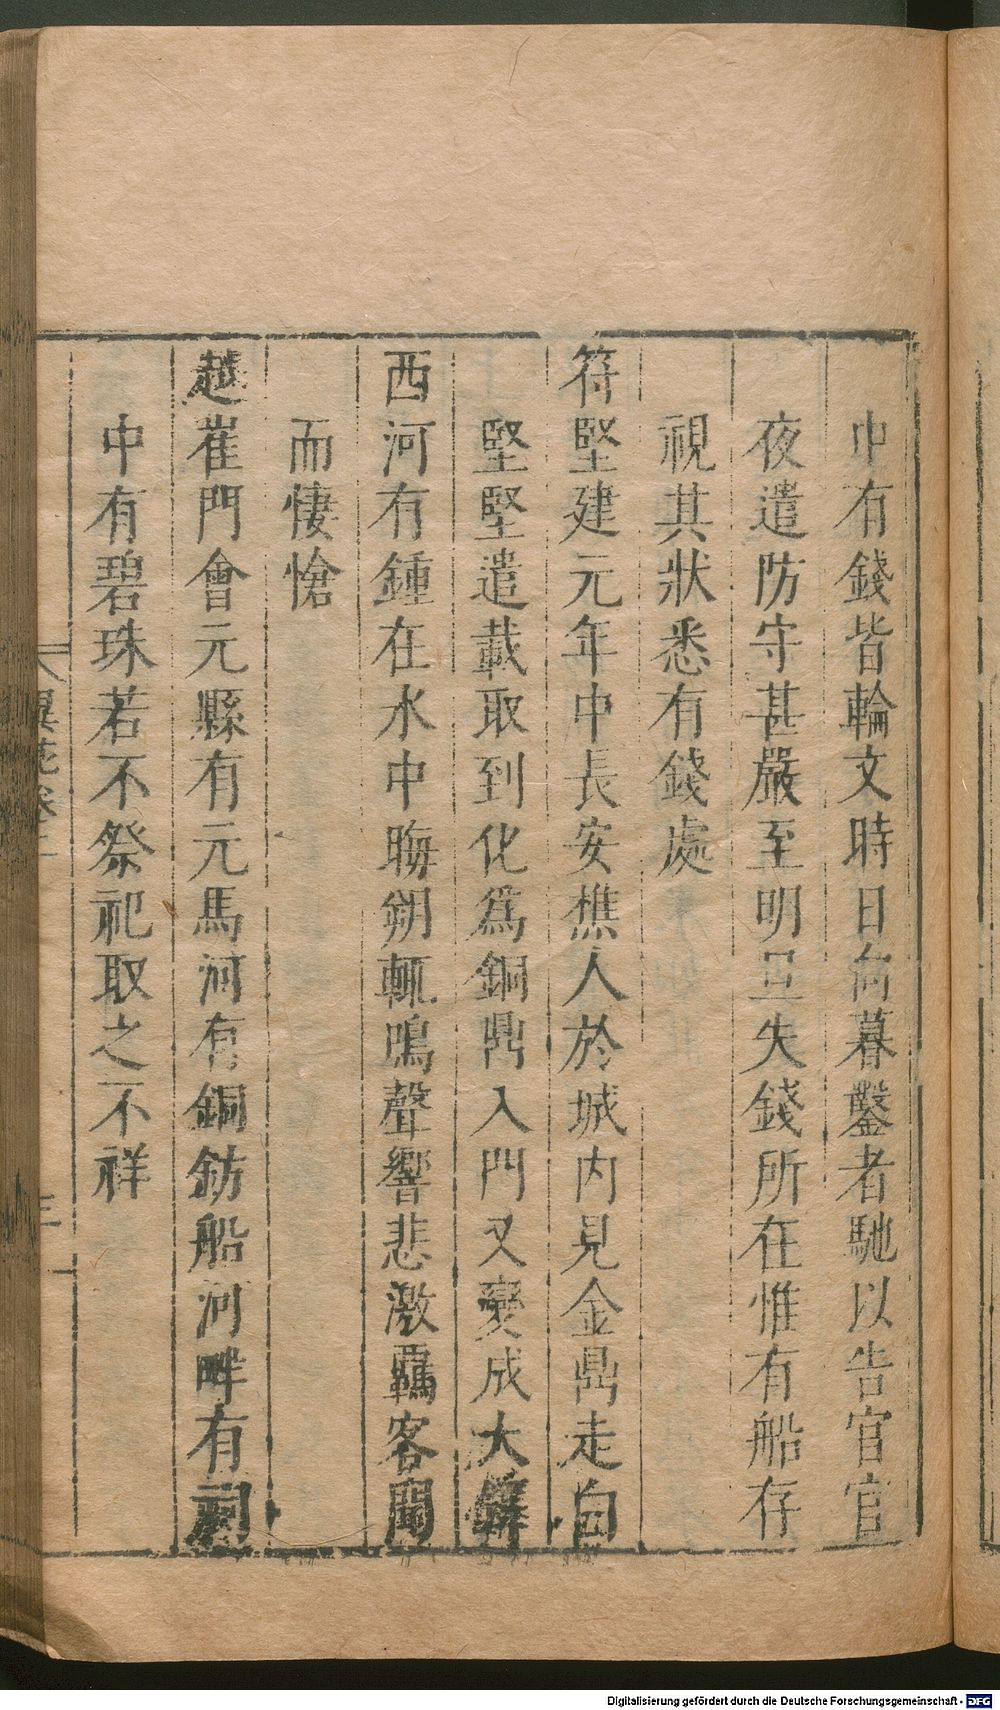 中有錢皆輪文時日向暮鑿者馳以告官官
夜遣防守甚嚴至明旦失錢所在惟有船存
視其狀悉有錢處
符堅建元年中長安樵人於城内見金鼎走白
堅堅遣載取到化為銅鼎入門又變成大鐸
西河有鍾在水中晦朔輒鳴聲響悲激羈客聞
而悽愴
越嶲門會元縣有元馬河有銅鈁船河畔有祠
中有碧珠若不祭祀取之不祥
異苑卷二
三
Digitalisierung gefördert durch die Deutsche Forschungsgemeinschaft - DFG